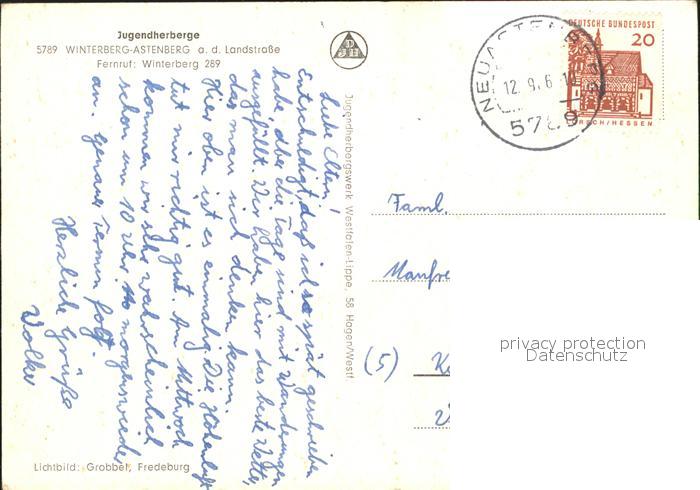 Jugendherberge
5789 WINTERBERG-ASTENBERG a. d. Landstraße
Fernruf: Winterberg 289
Liebe Eltern!
Entschuldigt, daß ich so spät geschrieben
habe, aber die Tage sind mit Wanderungen
ausgefüllt. Wir haben hier das beste Wetter,
das man sich denken kann.
Hier oben ist es einmalig. Die Höhenluft
tut mir richtig gut. Am Mittwoch
kommen wir sehr wahrscheinlich
schon um 10 Uhr morgens wieder
an. Genauer Termin folgt.
Herzliche Grüße
Volker
Lichtbild: Grobbel, Fredeburg
Jugendherbergswerk Westfalen-Lippe, 58 Hagen/Westf
NEUASTENBERG
12. 9. 6
578.9
DEUTSCHE BUNDESPOST
20
RSCH/HESSEN
Faml.
Manfre
(5)
privacy protection
Datenschutz